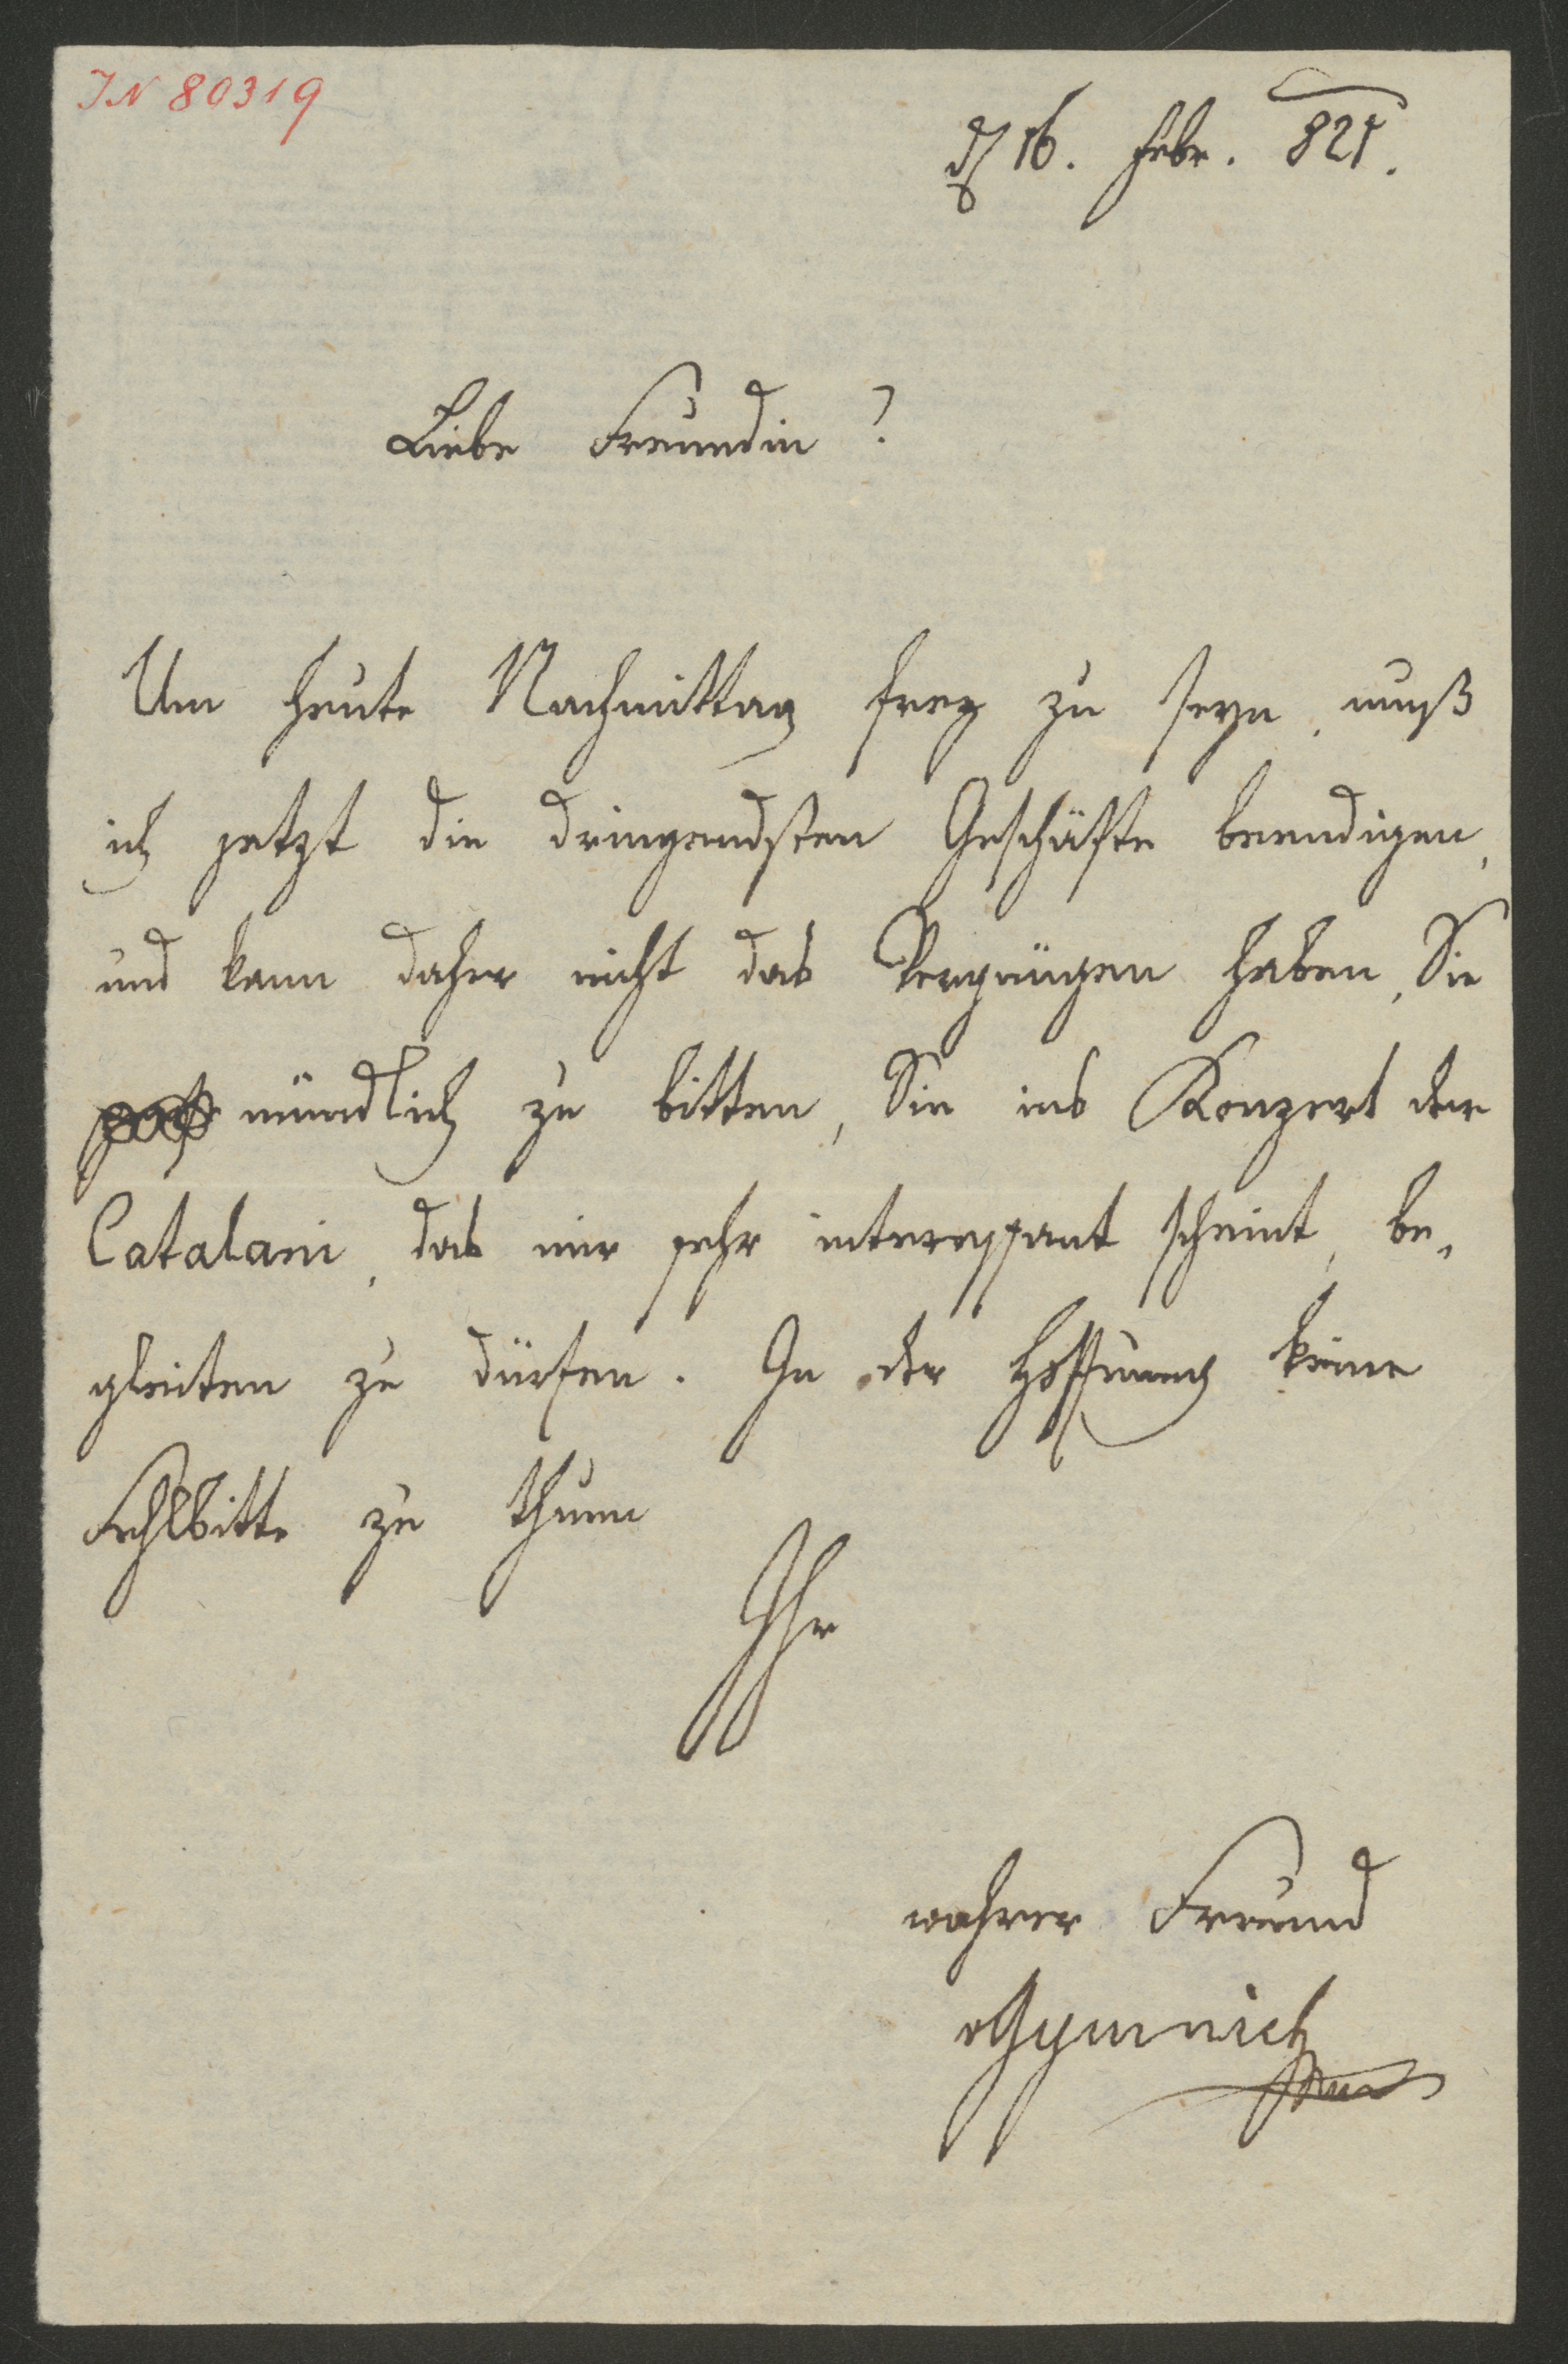 IN 80319
d 16. Febr. 821.
Liebe Freundin!
Um heute Nachmittag frey zu seyn, muß
ich jetzt die dringendsten Geschäfte beendigen,
und kann daher nicht das Vergnügen haben, Sie
mündlich zu bitten, Sie ins Konzert der
Catalani, das mir sehr interessant scheint, be„
gleiten zu dürfen. In der Hoffnung keine
Fehlbitte zu thun
Ihr
wahrer Freund
vGymnich